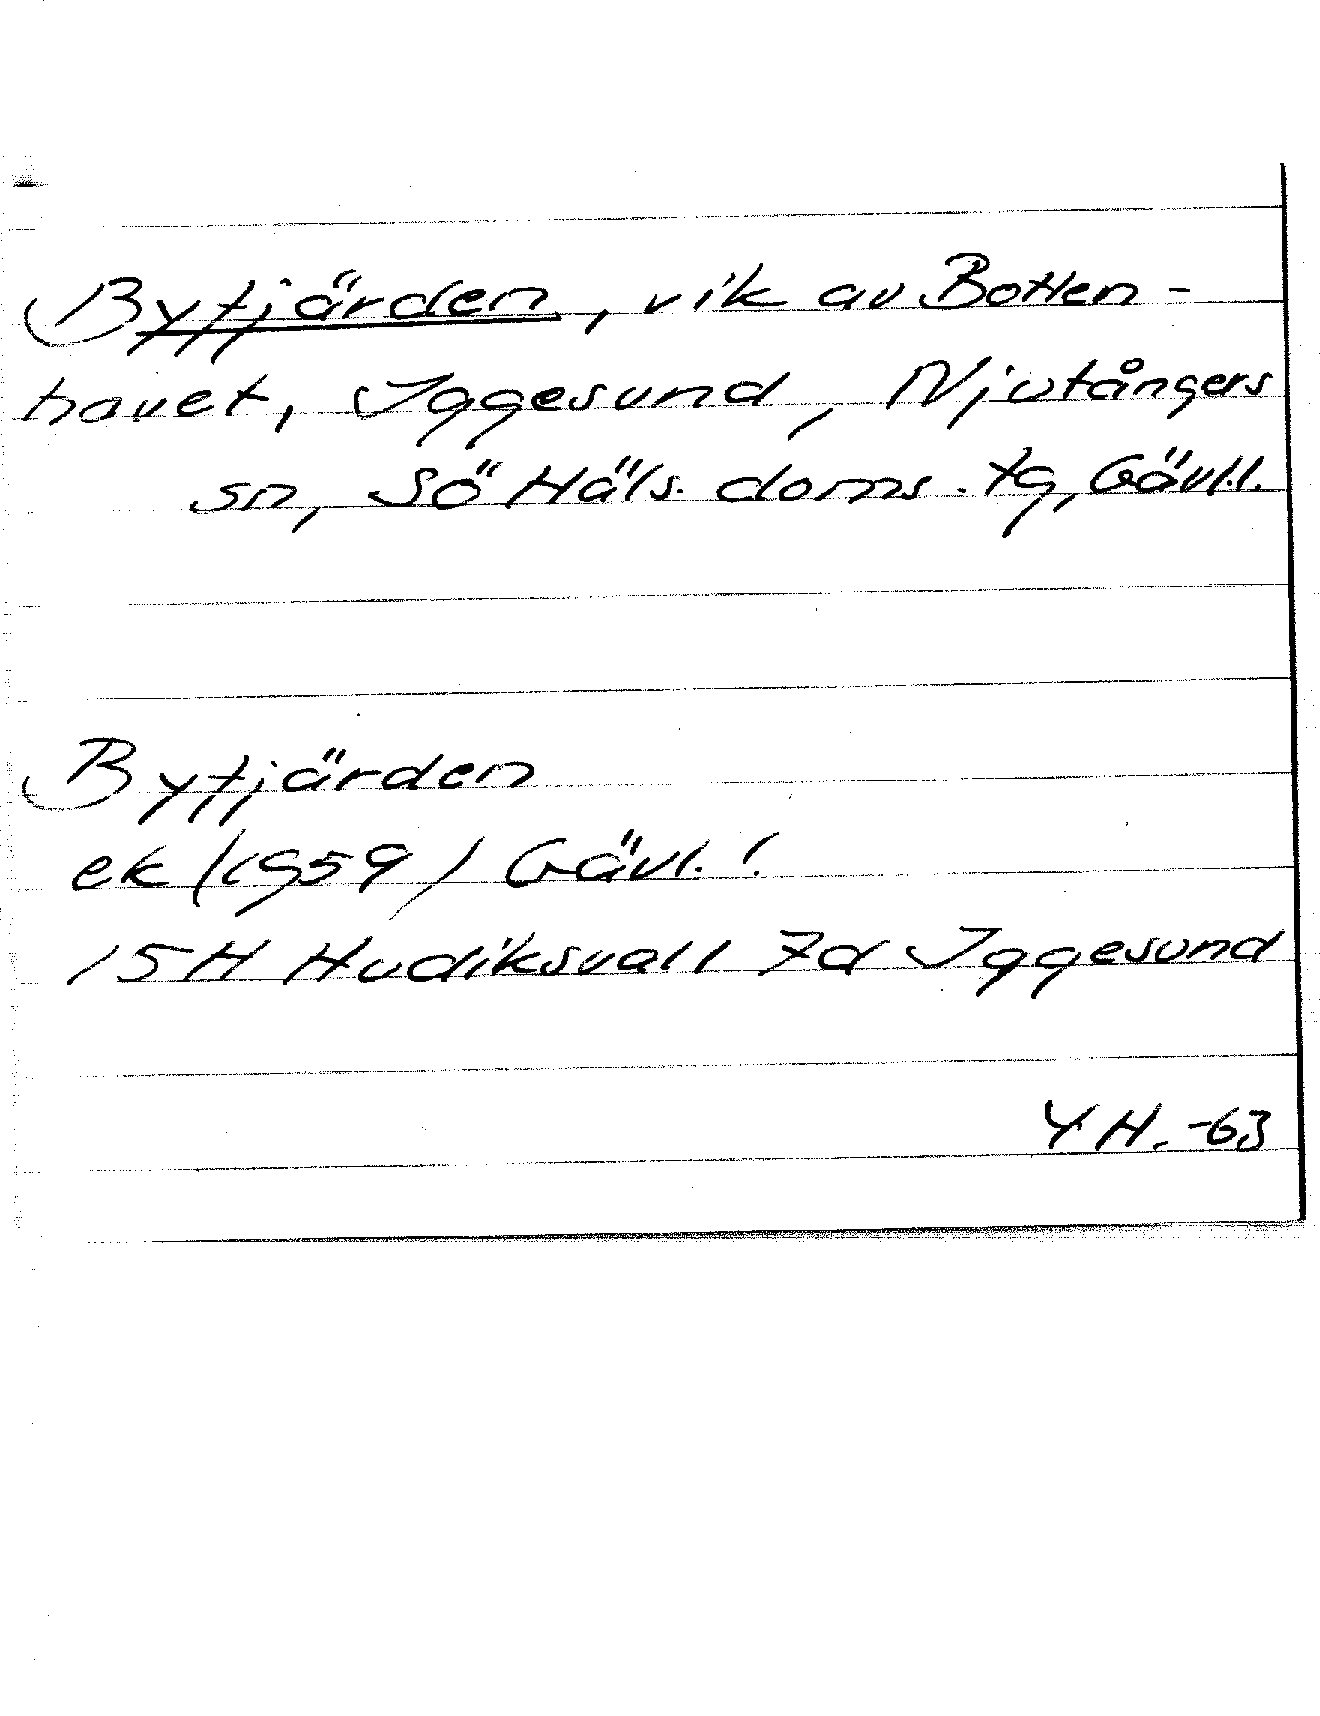 Byfjärden, vik av Botten-
havet, Iggesund, Njutångers
sn, Sö Häls. doms. tg, Gävl.l.
Byfjärden
ek (1959) Gävl. l.
15H Hudiksvall 7d Iggesund
YH. -63